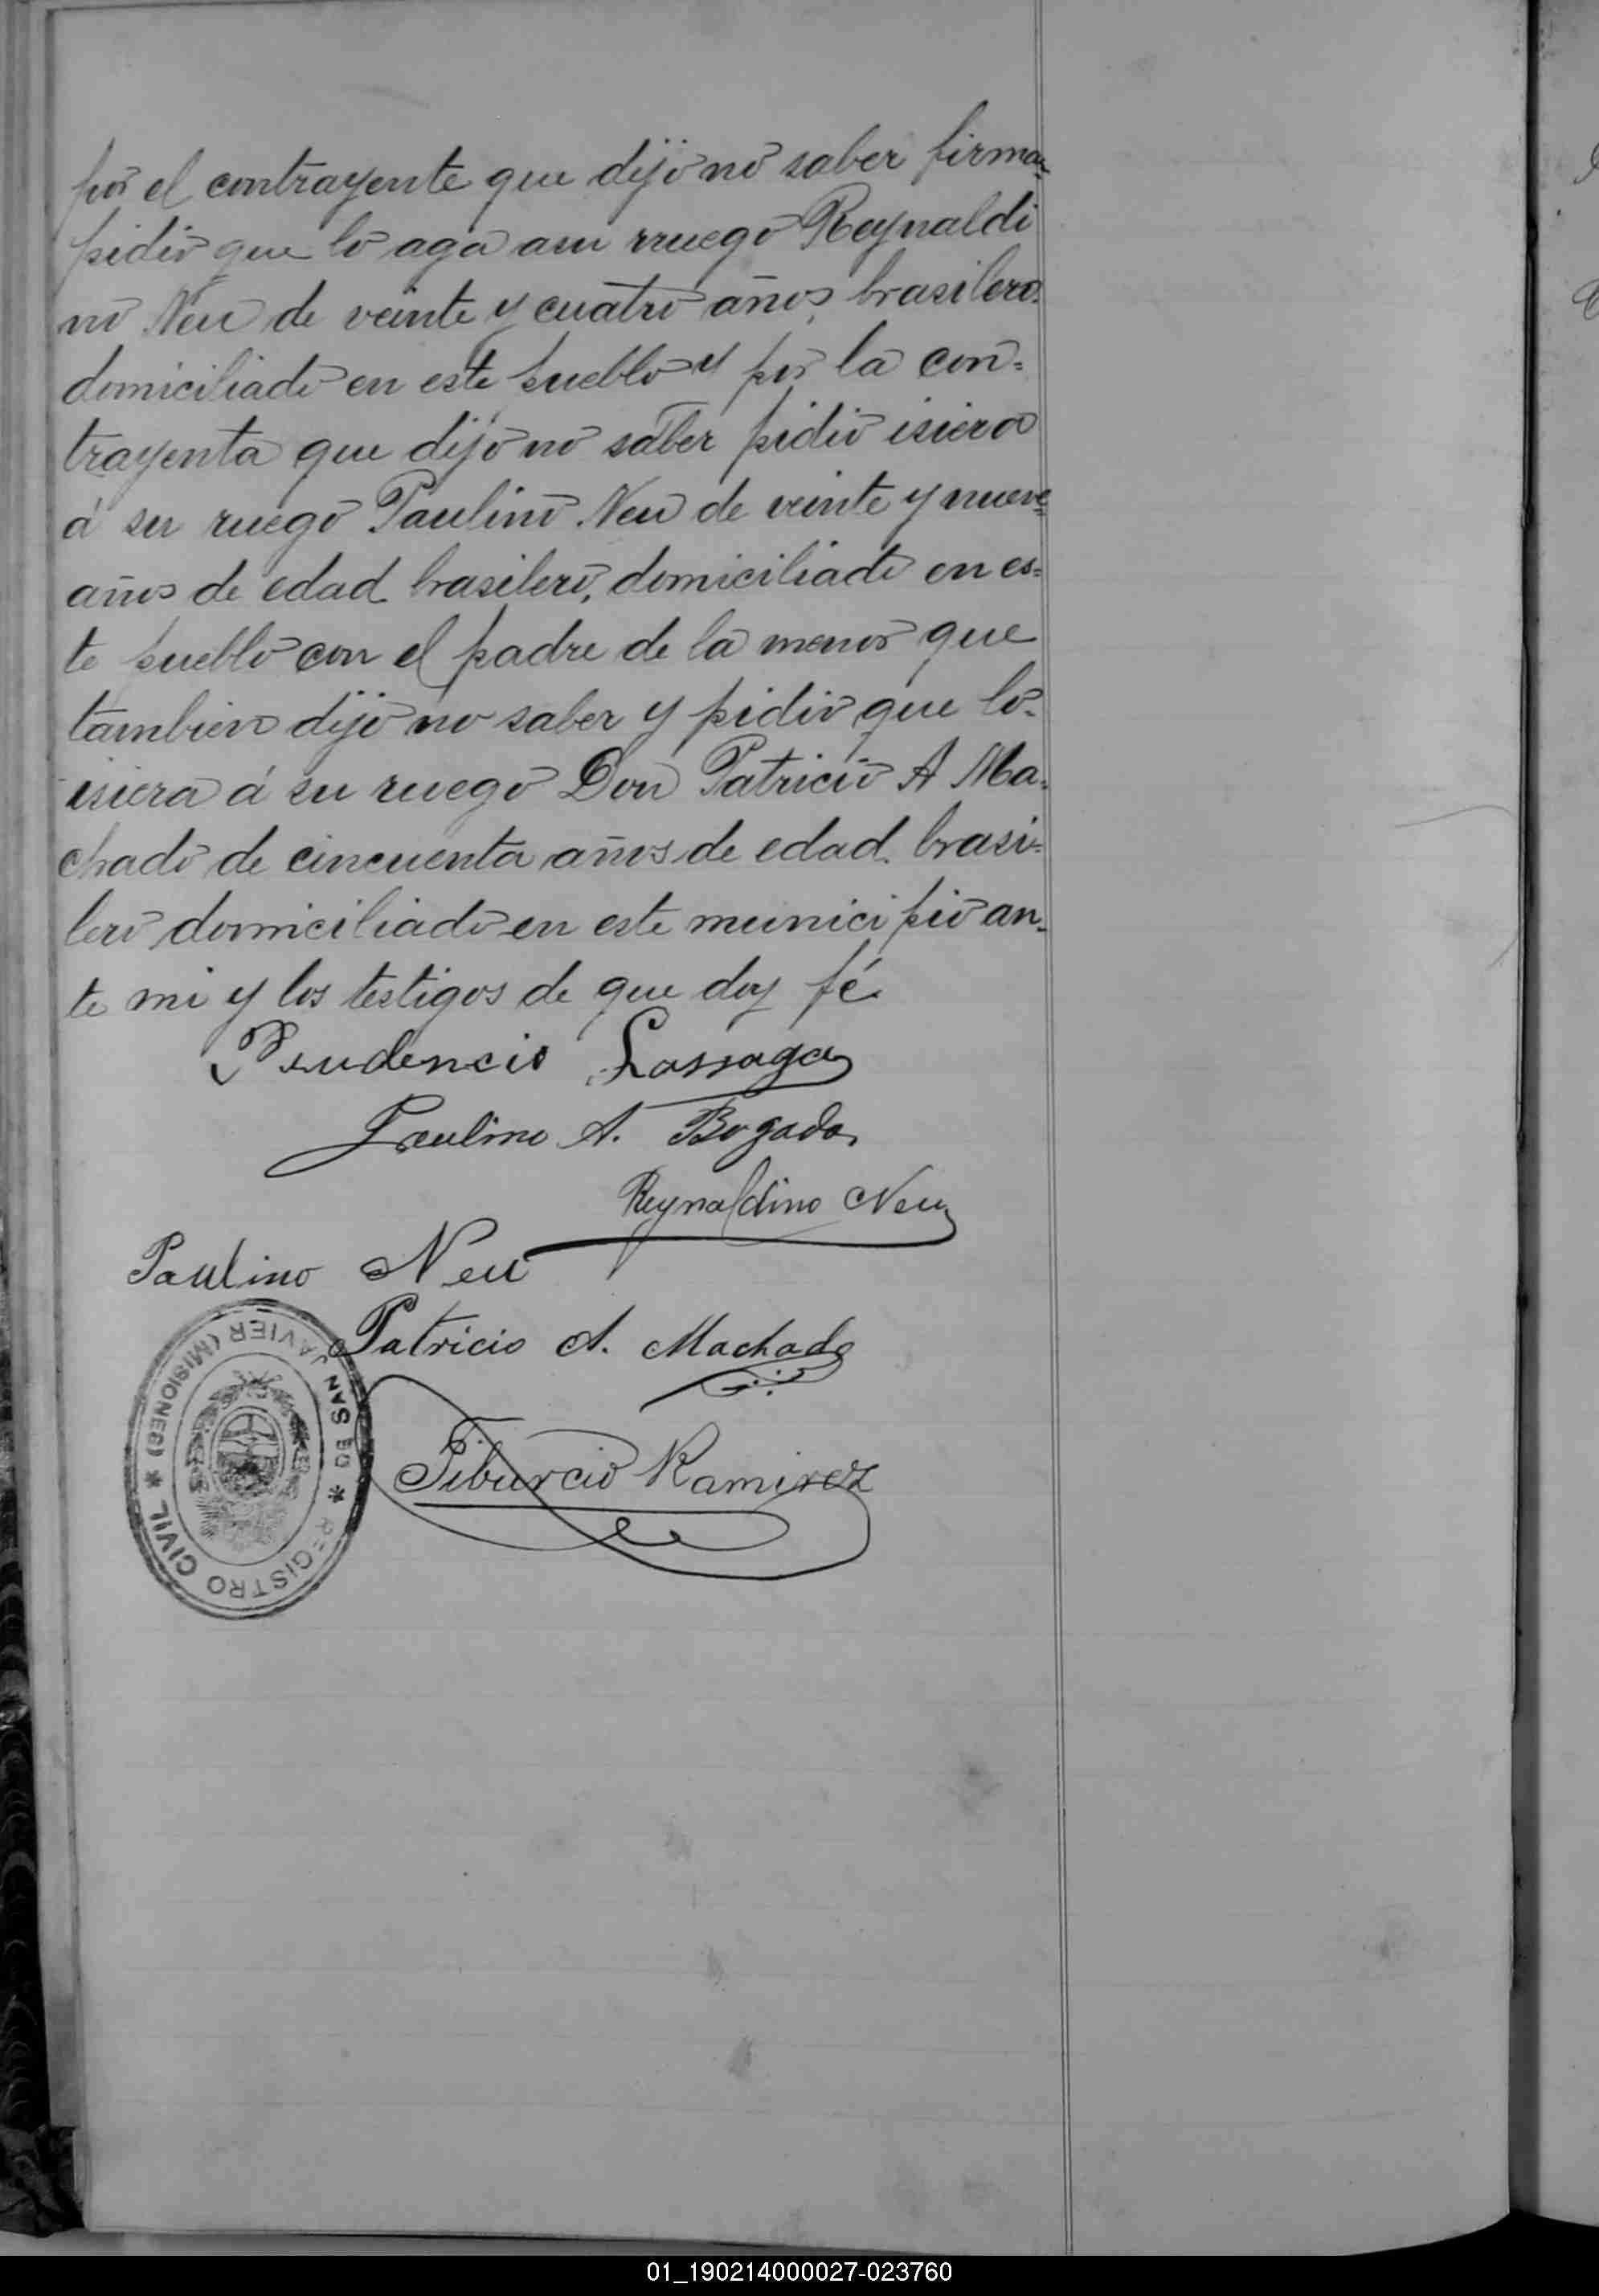 por el contrayente que dijo no saber firmar
pidio que lo aga asu rruego Reynaldi
no Neu de veinte y cuatro años, brasilero.
domiciliado en este pueblo y por la con=
trayenta que dijo no saber pidio isiera
á su ruego Paulino Neu de veinte y nueve
años de edad brasilero, domiciliado en es=
te pueblo con el padre de la menor que
tambien dijo no saber y pidio que lo
isiera á su ruego Don Patricio A Ma=
chado de cincuenta años de edad. brasi=
lero domiciliado en este municipio an=
te mi y los testigos de que doy fé
Prudencio Lassaga
Paulino A. Bogado
Reynaldino Neu
Paulino Neu
Patricio A. Machado
Tiburcio Ramirez
* REGISTRO CIVIL * DE SAN JAVIER (MISIONES)
01_190214000027-023760